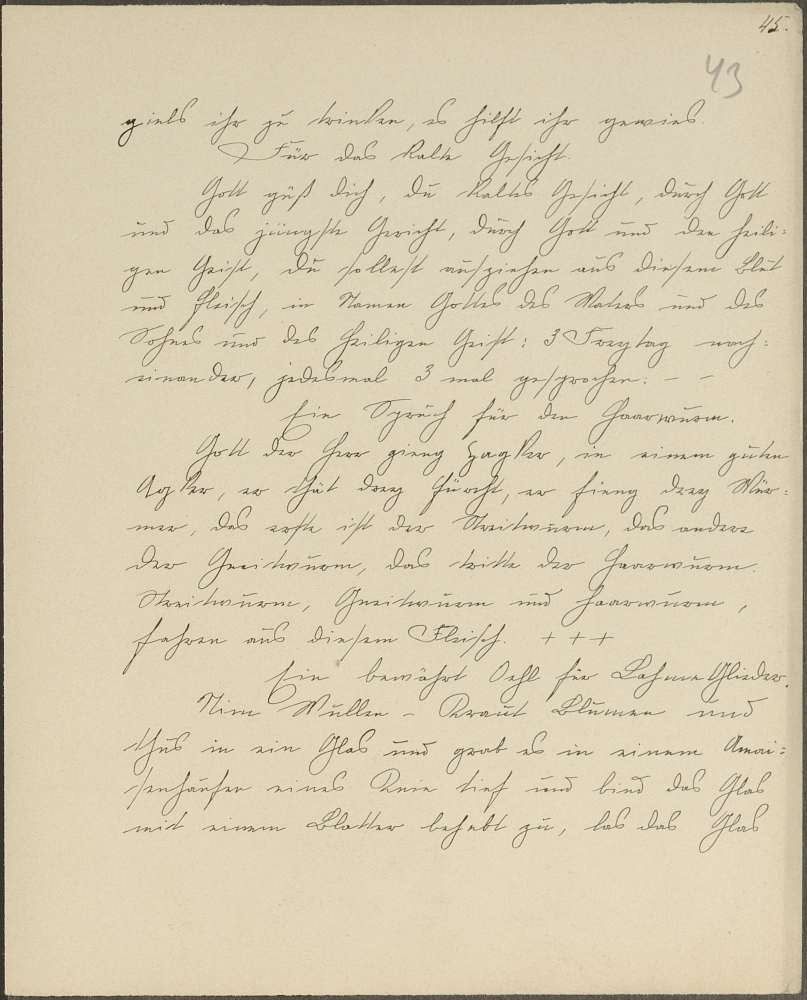 45.
43
giels ihr zu trinken, es hilft ihr gewies.
Für das kalte Gesicht.
Gott güß dich, du kaltes Gesicht, durch Gott
und das jüngste Gericht, durch Gott und den heili-
gen Geist, du sollest ausziehen aus diesem Blut
und Fleisch, in Namen Gottes des Vaters und des
Sohnes und des heiligen Geist: 3 Freytag nach-
einander, jedesmal 3 mal gesprochen: – –
Ein Spruch für den Haarwurm.
Gott der Herr gieng zagker, in einem guten
Agker, er thät drey Fürcht, er fieng drey Wür-
mer, das erste ist der Streitwurm, das andere
der Gneitwurm, das tritte der Haarwurm.
Streitwurm, Gneitwurm und Haarwurm,
fahren aus diesem Fleisch. +++
Ein bewährt Oehl für Lahme Glieder.
Nim Wullen-Kraut Blumen und
thus in ein Glas und grab es in einem Amai-
senhaufen eines Knie tief und bind das Glas
mit einem Blatter behebt zu, las das Glas